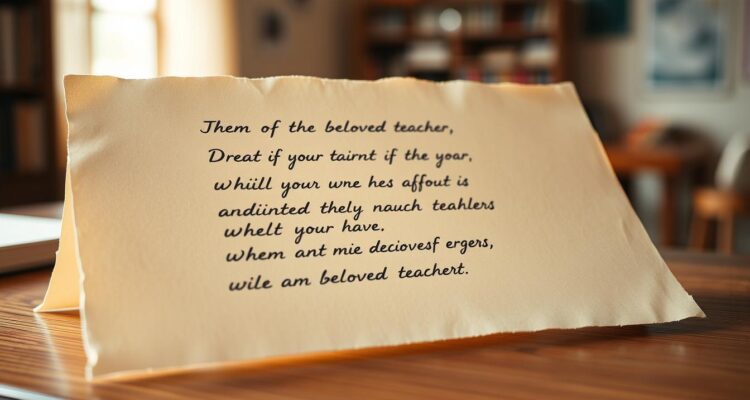 Them of the beloved teacher,
Dreat if your tairnt if the yoar,
whiill your wne hes affout is
andiinted thely nauch teahlers
whelt your have.
whem ant mie deciovesf ergers,
wile am beloved teachert.